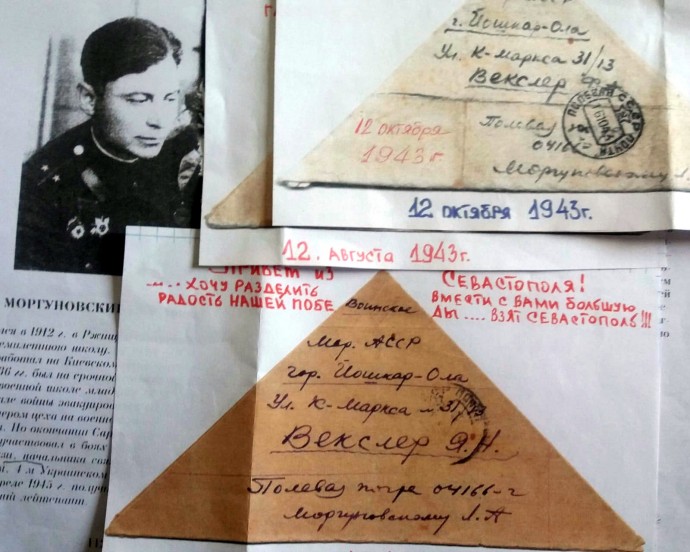 г. Йошкар-Ола
Ул. К-Маркса 31/13
Векслер
12 октября
1943 г.
Полевая
04166-
Моргуновскому Л.
12 октября 1943г.
12. Августа 1943г.
ПРИВЕТ ИЗ СЕВАСТОПОЛЯ!
... ХОЧУ РАЗДЕЛИТЬ ВМЕСТИ С ВАМИ БОЛЬШУЮ
РАДОСТЬ НАШЕЙ ПОБЕ ДЫ .... ВЗЯТ СЕВАСТОПОЛЬ!!!
Воинское
Мар. АССР
гор. Йошкар-Ола
Ул. К-Маркса 31/
Векслер Я.Н.
Полевая почта 04166-г
Моргуновскому Л.А
МОРГУНОВСКИЙ
лся в 1912 г. в Ржищ
семилетнюю школу.
работал на Киевском
36 гг. был на срочной
военной школе млад
але войны эвакуирова
ером цеха на военно
. По окончании Сар
участвовал в боях
зи, начальника свя
й, 4 м Украинском
преле 1945 г. получ
ий лейтенант.